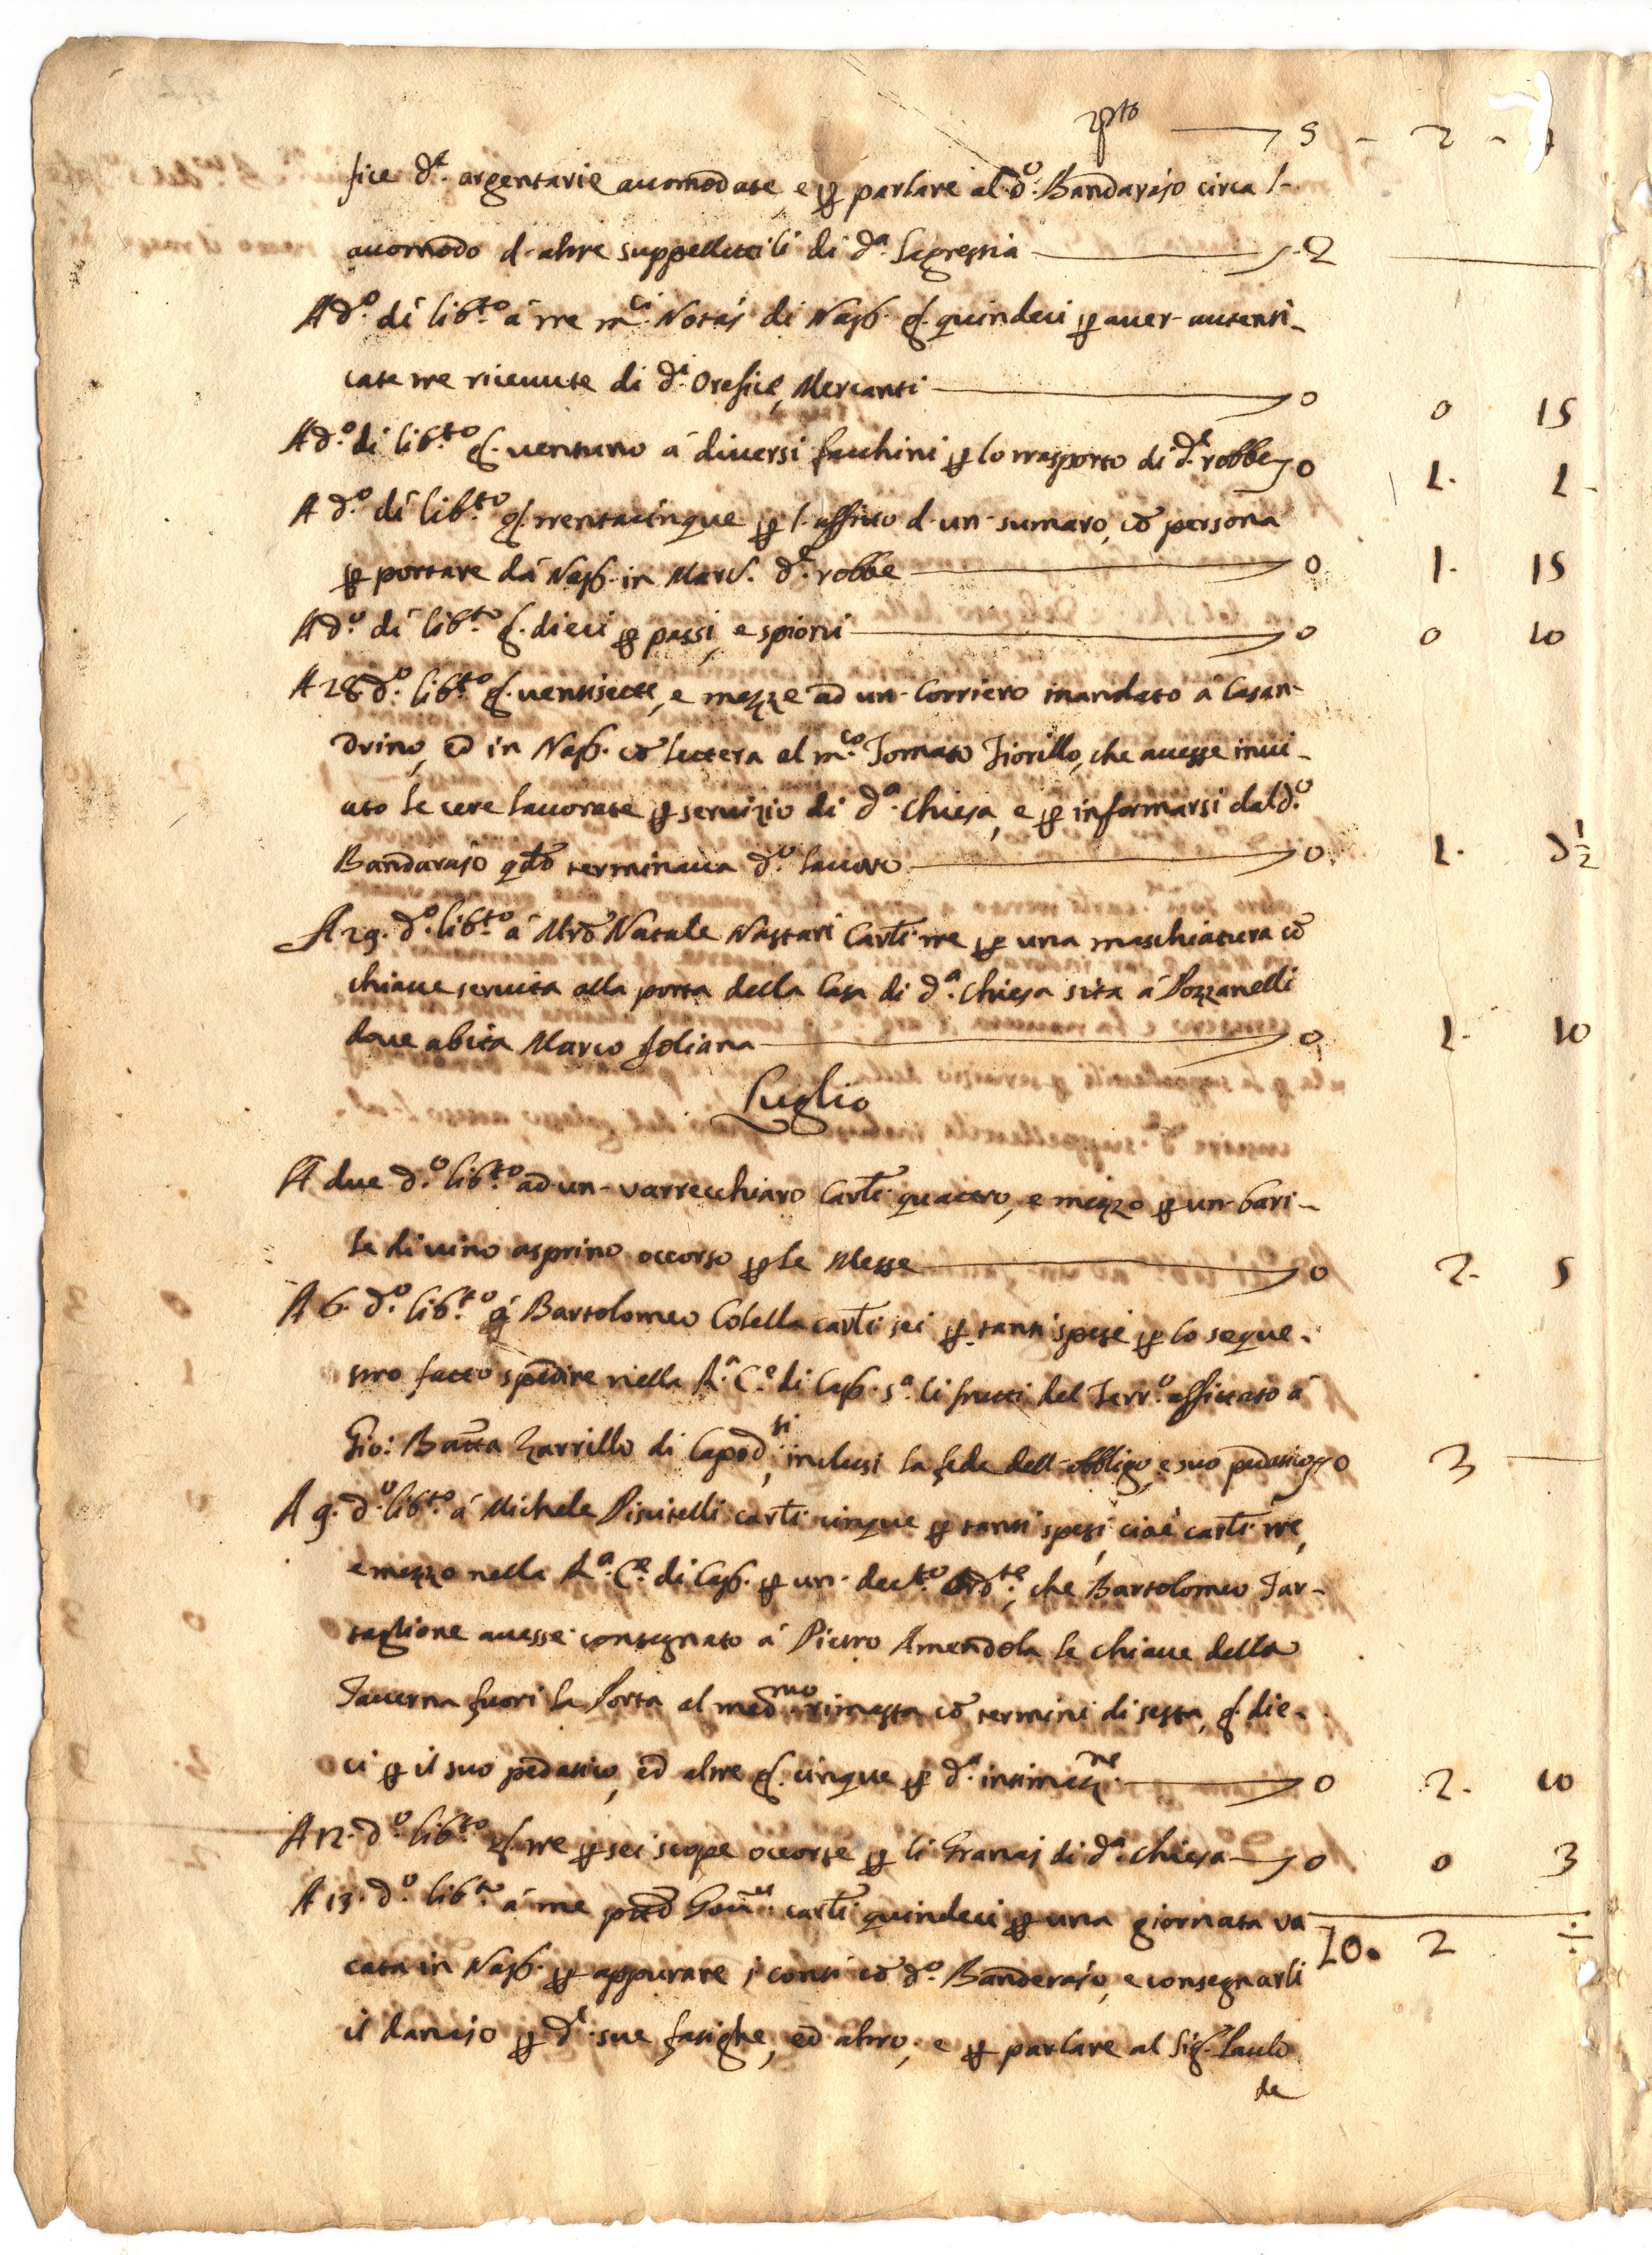 rpto 5 - 2 -
fice d.e argentarie accomodate, e per parlare al d.o Bandarajo circa l-
accomodo d-altre suppellettili di d.a Sagrestia 2
A d.o di lib.to à tre m.ci Notaj di Nap. g. quindeci per aver autenti-
cate tre ricevute di d.i Orefice, Mercanti 0 0 15
A d.o di lib.to g. ventuno à diversi facchini per lo trasporto di d.e robbe 0 1. 1
A d.o di lib.to g. trentacinque per l-affitto d-un-sumaro, cō persona
per portare da Nap. in Marc. d.e robbe 0 1. 15
A d.o di lib.to g. dieci per passi, e 0 0 10
A 28. d.o lib.to g. ventisette, e mezze ad un-Corriero mandato à Casan-
drino, ed in Nap. cō lettera al m.co Tomaso Fiorillo, che avesse invi-
ato le cere lavorate per servizio di d.a Chiesa, e per informarsi dal d.o
Bandarajo qdo terminava d.o lavoro 0 1. 7½
A 29. d.o lib.to à Mro Natale Nastari Carli tre per una maschiatura cō
chiave servita alla porta della Casa di d.a Chiesa sita à Pozzanelli
dove abita Marco Foliana 0 1. 10
Luglio
A due d.o lib.to ad un-varrecchiaro Carli quattro, e mezzo per un-bari-
le di vino asprino occorso per le Messe 0 2. 5
A 6. d.o lib.to à Bartolomeo Colella carli sei per tanti spese per lo seque-
stro fatto spedire nella R.a C.e di Cap. s.a li frutti del Terr.o affittato à
Gio: Batta Zarrillo di Capod.si, inclusi la fede dell-obbligo, e suo pedatico 0 3
A 9. d.o lib.to à Michele Piscitelli carli cinque per tanti spesi, cioè carli tre,
e mezzo nella R.a C.e di Cap. per un-decr.to che Bartolomeo Tar-
taglione avesse consegnato à Pietro Amendola le chiave della
Taverna fuori la Porta al med.mo rimasta cō termini di sesta, g. die-
ci per il suo pedatico, ed altre g. cinque per d.a intimaz.ne 0 2. 10
A 12. d.o lib.to g. tre per sei scope occorse per li Granaj di d.a Chiesa 0 0 3
A 13. d.o lib.to à me Gov.re carli quindeci per una giornata va
cata in Nap. per appurare i conti cō d.o Banderajo, e consegnarli
10. 2
il danajo per d.e sue fatighe, ed altro, e per parlare al Sig. Paulo
de